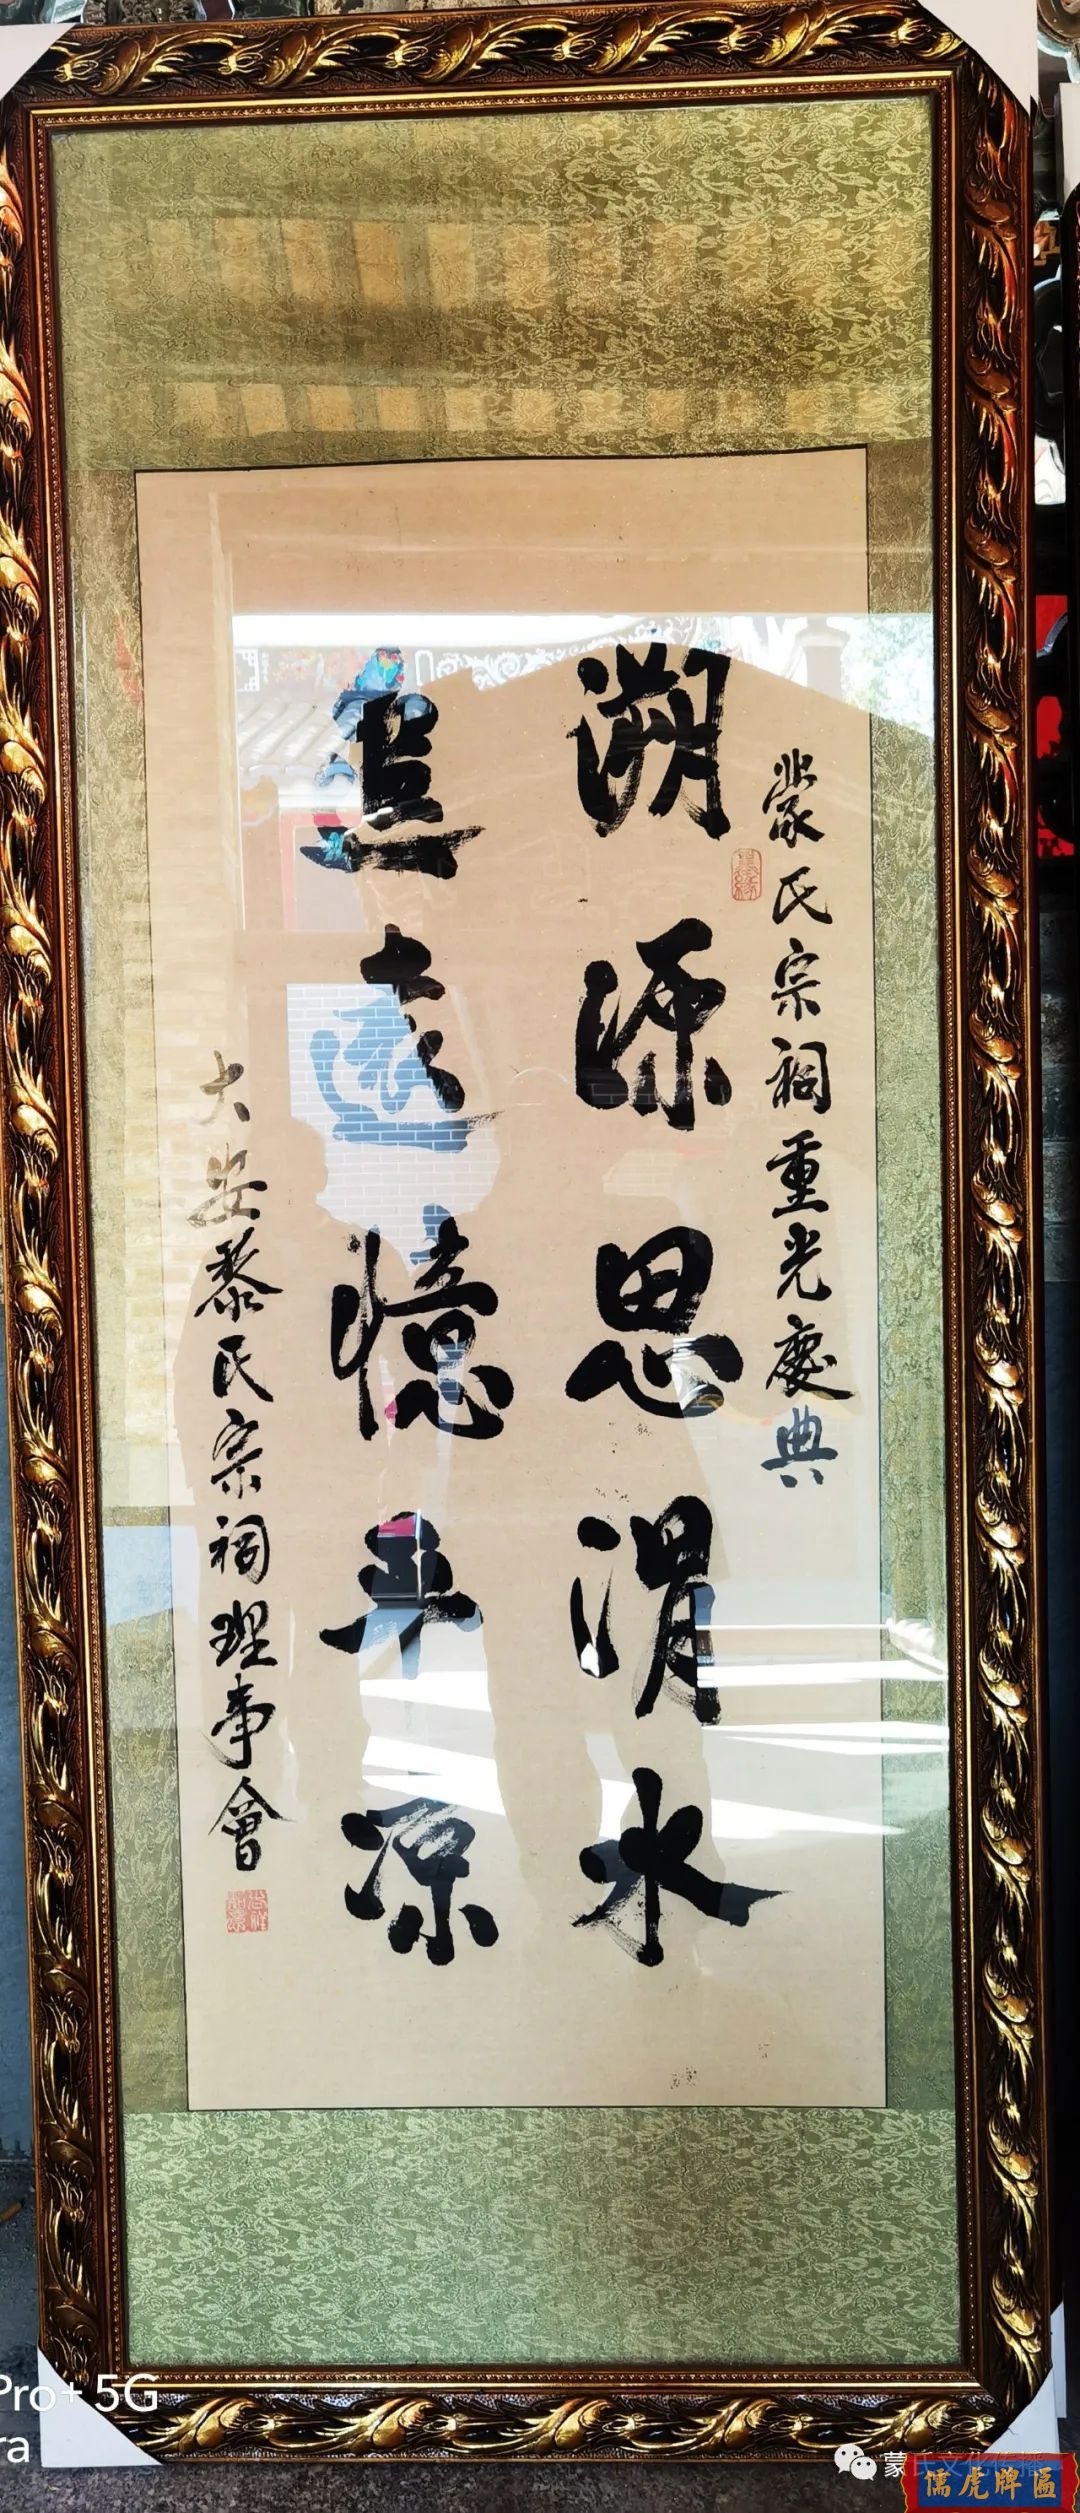 蒙氏宗祠重光慶典
溯源思渭水
追遠憶平凉
大安黎氏宗祠理事會
Pro+ 5G
ra
蒙氏文化传播
儒虎牌匾